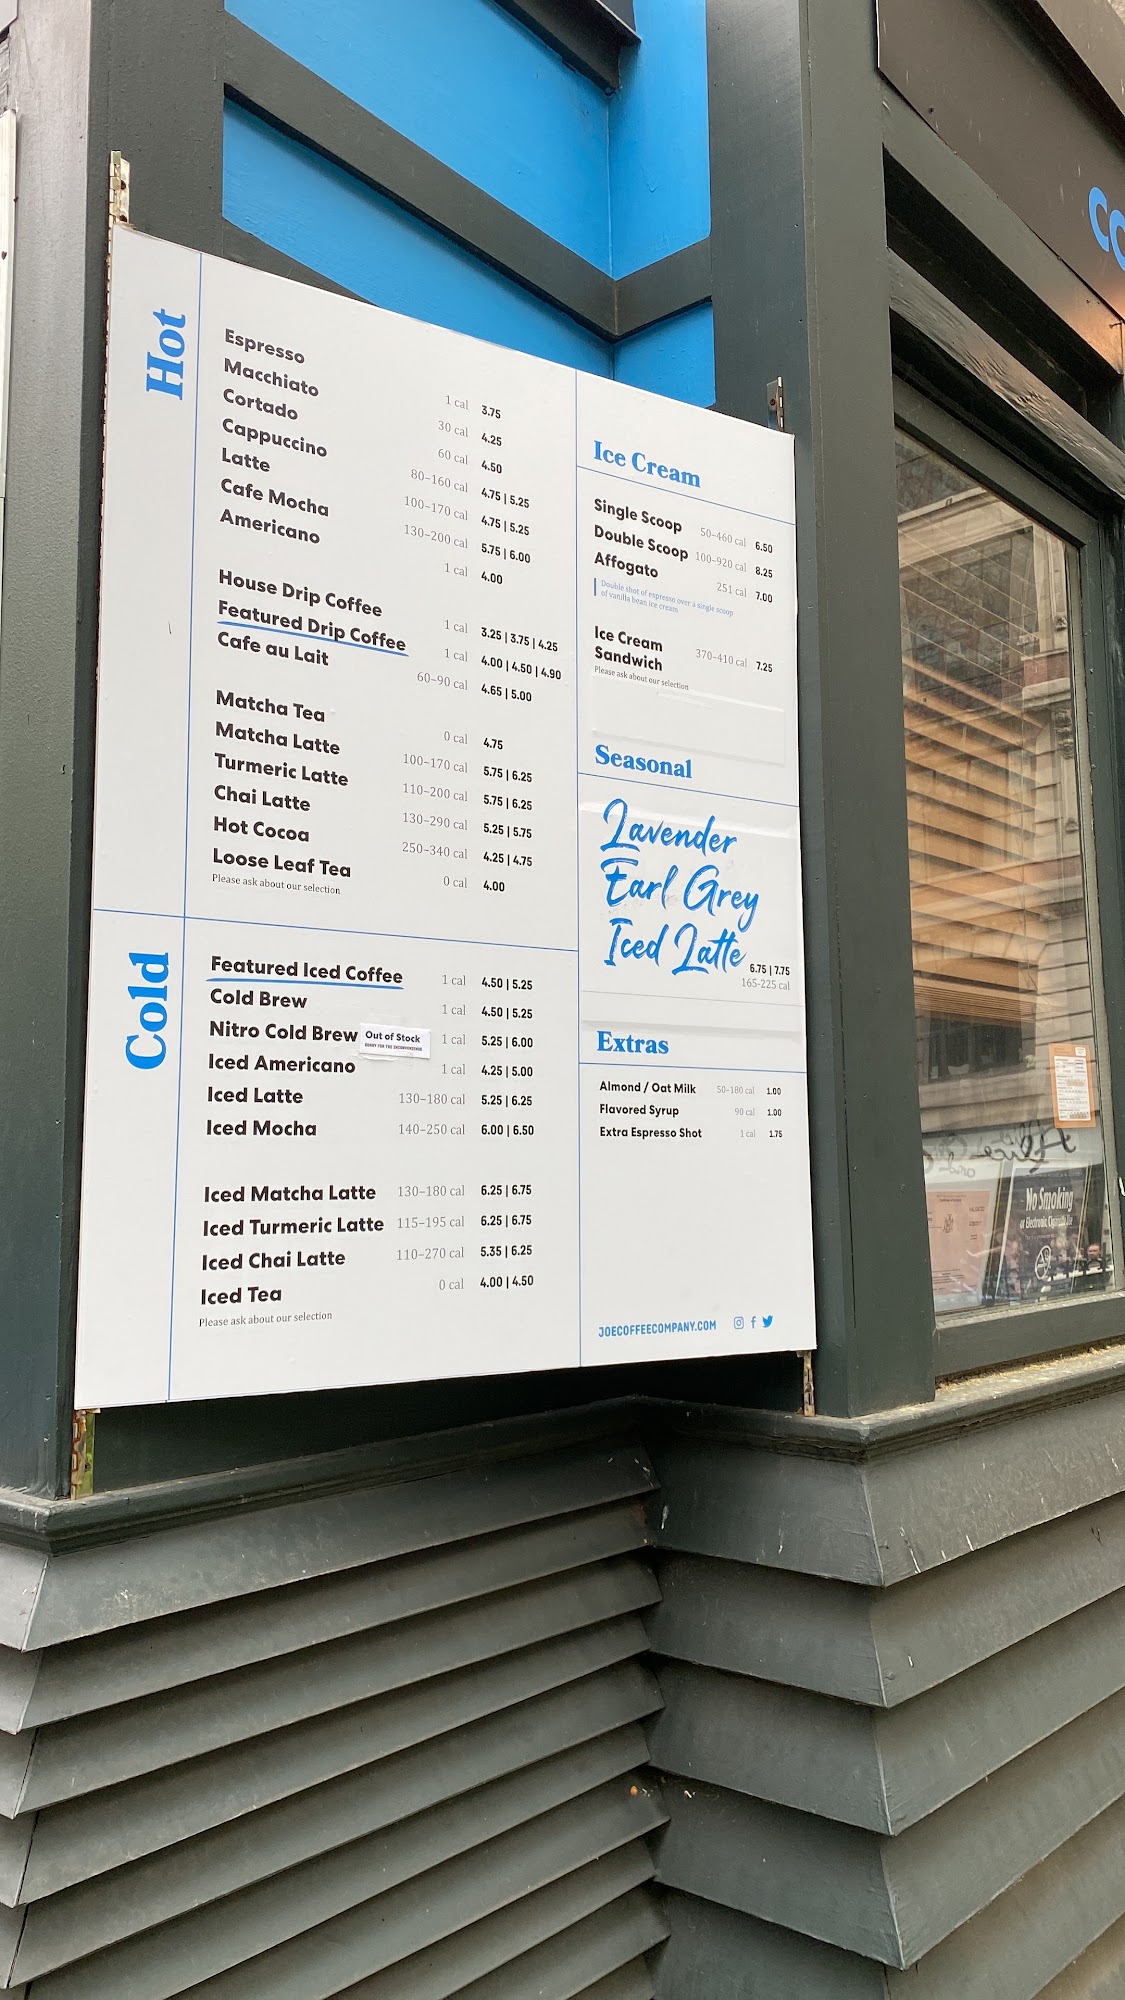 Hot
Espresso 1 cal 3.75
Macchiato 30 cal 4.25
Cortado 60 cal 4.50
Cappuccino 80–160 cal 4.75 | 5.25
Latte 100–170 cal 4.75 | 5.25
Cafe Mocha 130–200 cal 5.75 | 6.00
Americano 1 cal 4.00
House Drip Coffee 1 cal 3.25 | 3.75 | 4.25
Featured Drip Coffee 1 cal 4.00 | 4.50 | 4.90
Cafe au Lait 60–90 cal 4.65 | 5.00
Matcha Tea 0 cal 4.75
Matcha Latte 100–170 cal 5.75 | 6.25
Turmeric Latte 110–200 cal 5.75 | 6.25
Chai Latte 130–290 cal 5.25 | 5.75
Hot Cocoa 250–340 cal 4.25 | 4.75
Loose Leaf Tea 0 cal 4.00
Please ask about our selection
Cold
Featured Iced Coffee 1 cal 4.50 | 5.25
Cold Brew 1 cal 4.50 | 5.25
Nitro Cold Brew Out of Stock 1 cal 5.25 | 6.00
SORRY FOR THE INCONVENIENCE
Iced Americano 1 cal 4.25 | 5.00
Iced Latte 130–180 cal 5.25 | 6.25
Iced Mocha 140–250 cal 6.00 | 6.50
Iced Matcha Latte 130–180 cal 6.25 | 6.75
Iced Turmeric Latte 115–195 cal 6.25 | 6.75
Iced Chai Latte 110–270 cal 5.35 | 6.25
Iced Tea 0 cal 4.00 | 4.50
Please ask about our selection
Ice Cream
Single Scoop 50–460 cal 6.50
Double Scoop 100–920 cal 8.25
Affogato 251 cal 7.00
Double shot of espresso over a single scoop
of vanilla bean ice cream
Ice Cream
Sandwich 370–410 cal 7.25
Please ask about our selection
Seasonal
Lavender
Earl Grey
Iced Latte 6.75 | 7.75
165-225 cal
Extras
Almond / Oat Milk 50–180 cal 1.00
Flavored Syrup 90 cal 1.00
Extra Espresso Shot 1 cal 1.75
JOECOFFEECOMPANY.COM
No Smoking
or Electronic Cigarette Use